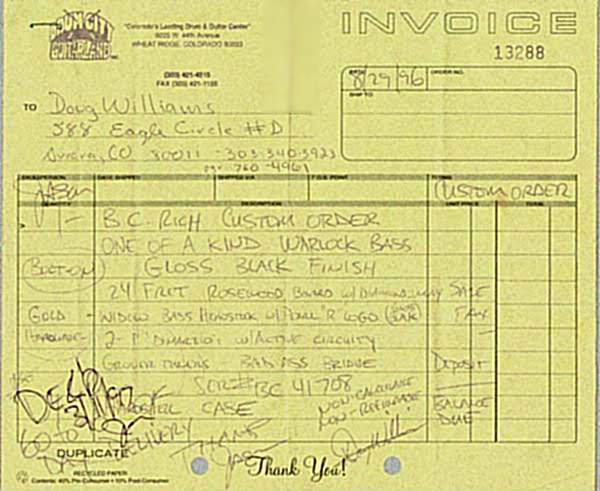 DRUM CITY
GUITARLAND INC.
"Colorado's Leading Drum & Guitar Center"
9225 W. 44th Avenue
WHEAT RIDGE, COLORADO 80033
(303) 421-4515
FAX (303) 421-1133
INVOICE
13288
DATE 8/29/96 ORDER NO.
SHIP TO
TO Doug Williams
588 Eagle Circle #D
Aurora, CO 80011 - 303-340-3923
760-4961
SALESPERSON DATE SHIPPED SHIPPED VIA F.O.B. POINT TERMS
JASON CUSTOM ORDER
QUANTITY DESCRIPTION UNIT PRICE TOTAL
1- B.C. RICH CUSTOM ORDER
ONE OF A KIND WARLOCK BASS
(BOLT-ON) GLOSS BLACK FINISH
24 FRET ROSEWOOD BOARD W/ DIAMOND INLAY SALE
GOLD - WIDOW BASS HEADSTOCK W/ PEARL "R" LOGO TAX
HARDWARE - 2- "P" DIMARZIO'S W/ ACTIVE CIRCUITRY
GROVER TUNERS - BAD ASS BRIDGE DEPOSIT
SER# BC 41708
CASE NON-CANCELABLE
NON-REFUNDABLE BALANCE
DUE
60 TO
DAY DELIVERY
DUPLICATE
RECYCLED PAPER
Contents: 40% Pre-Consumer • 10% Post-Consumer
Thank You!